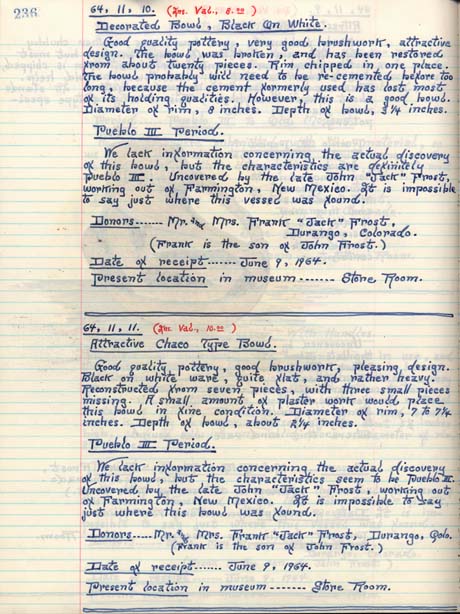 236
64, 11, 10. (Ins. Val., 8.00)
Decorated Bowl, Black On White.
Good quality pottery, very good brushwork, attractive
design. The bowl was broken and has been restored
from about twenty pieces. Rim chipped in one place.
The bowl probably will need to be re-cemented before too
long, because the cement formerly used has lost most
of its holding qualities. However, this is a good bowl.
Diameter of rim, 8 inches. Depth of bowl, 3¼ inches.
Pueblo III Period.
We lack information concerning the actual discovery
of this bowl, but the characteristics are definitely
Pueblo III. Uncovered by the late John "Jack" Frost,
working out of Farmington, New Mexico. It is impossible
to say just where this vessel was found.
Donors...... Mr. and Mrs. Frank "Jack" Frost,
Durango, Colorado.
(Frank is the son of John Frost.)
Date of receipt...... June 9, 1964.
Present location in museum ------- Store Room.
64, 11, 11. (Ins. Val., 10.00)
Attractive Chaco Type Bowl.
Good quality pottery, good brushwork, pleasing design.
Black on white ware, quite flat, and rather heavy.
Reconstructed from seven pieces, with three small pieces
missing. A small amount of plaster work would place
this bowl in fine condition. Diameter of rim, 7 to 7¼
inches. Depth of bowl, about 2¼ inches.
Pueblo III Period.
We lack information concerning the actual discovery
of this bowl, but the characteristics seem to be Pueblo III.
Uncovered by the late John "Jack" Frost, working out
of Farmington, New Mexico. It is impossible to say
just where this bowl was found.
Donors----- Mr. and Mrs. Frank "Jack" Frost, Durango, Colo.
(Frank is the son of John Frost.)
Date of receipt------ June 9, 1964.
Present location in museum ------ Store Room.